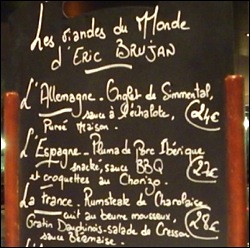 Les Viandes du Monde
d'Eric BRUJAN
L'Allemagne - Onglet de Simmental,
sauce à l'échalote,
Purée Maison. 24€
L'Espagne - Pluma de Porc Ibérique
snacké, sauce BBQ
et croquettes au Chorizo. 27€
La France - Rumsteak de Charolaise
cuit au beurre mousseux,
Gratin Dauphinois - salade de Cresson
sauce Béarnaise. 28€